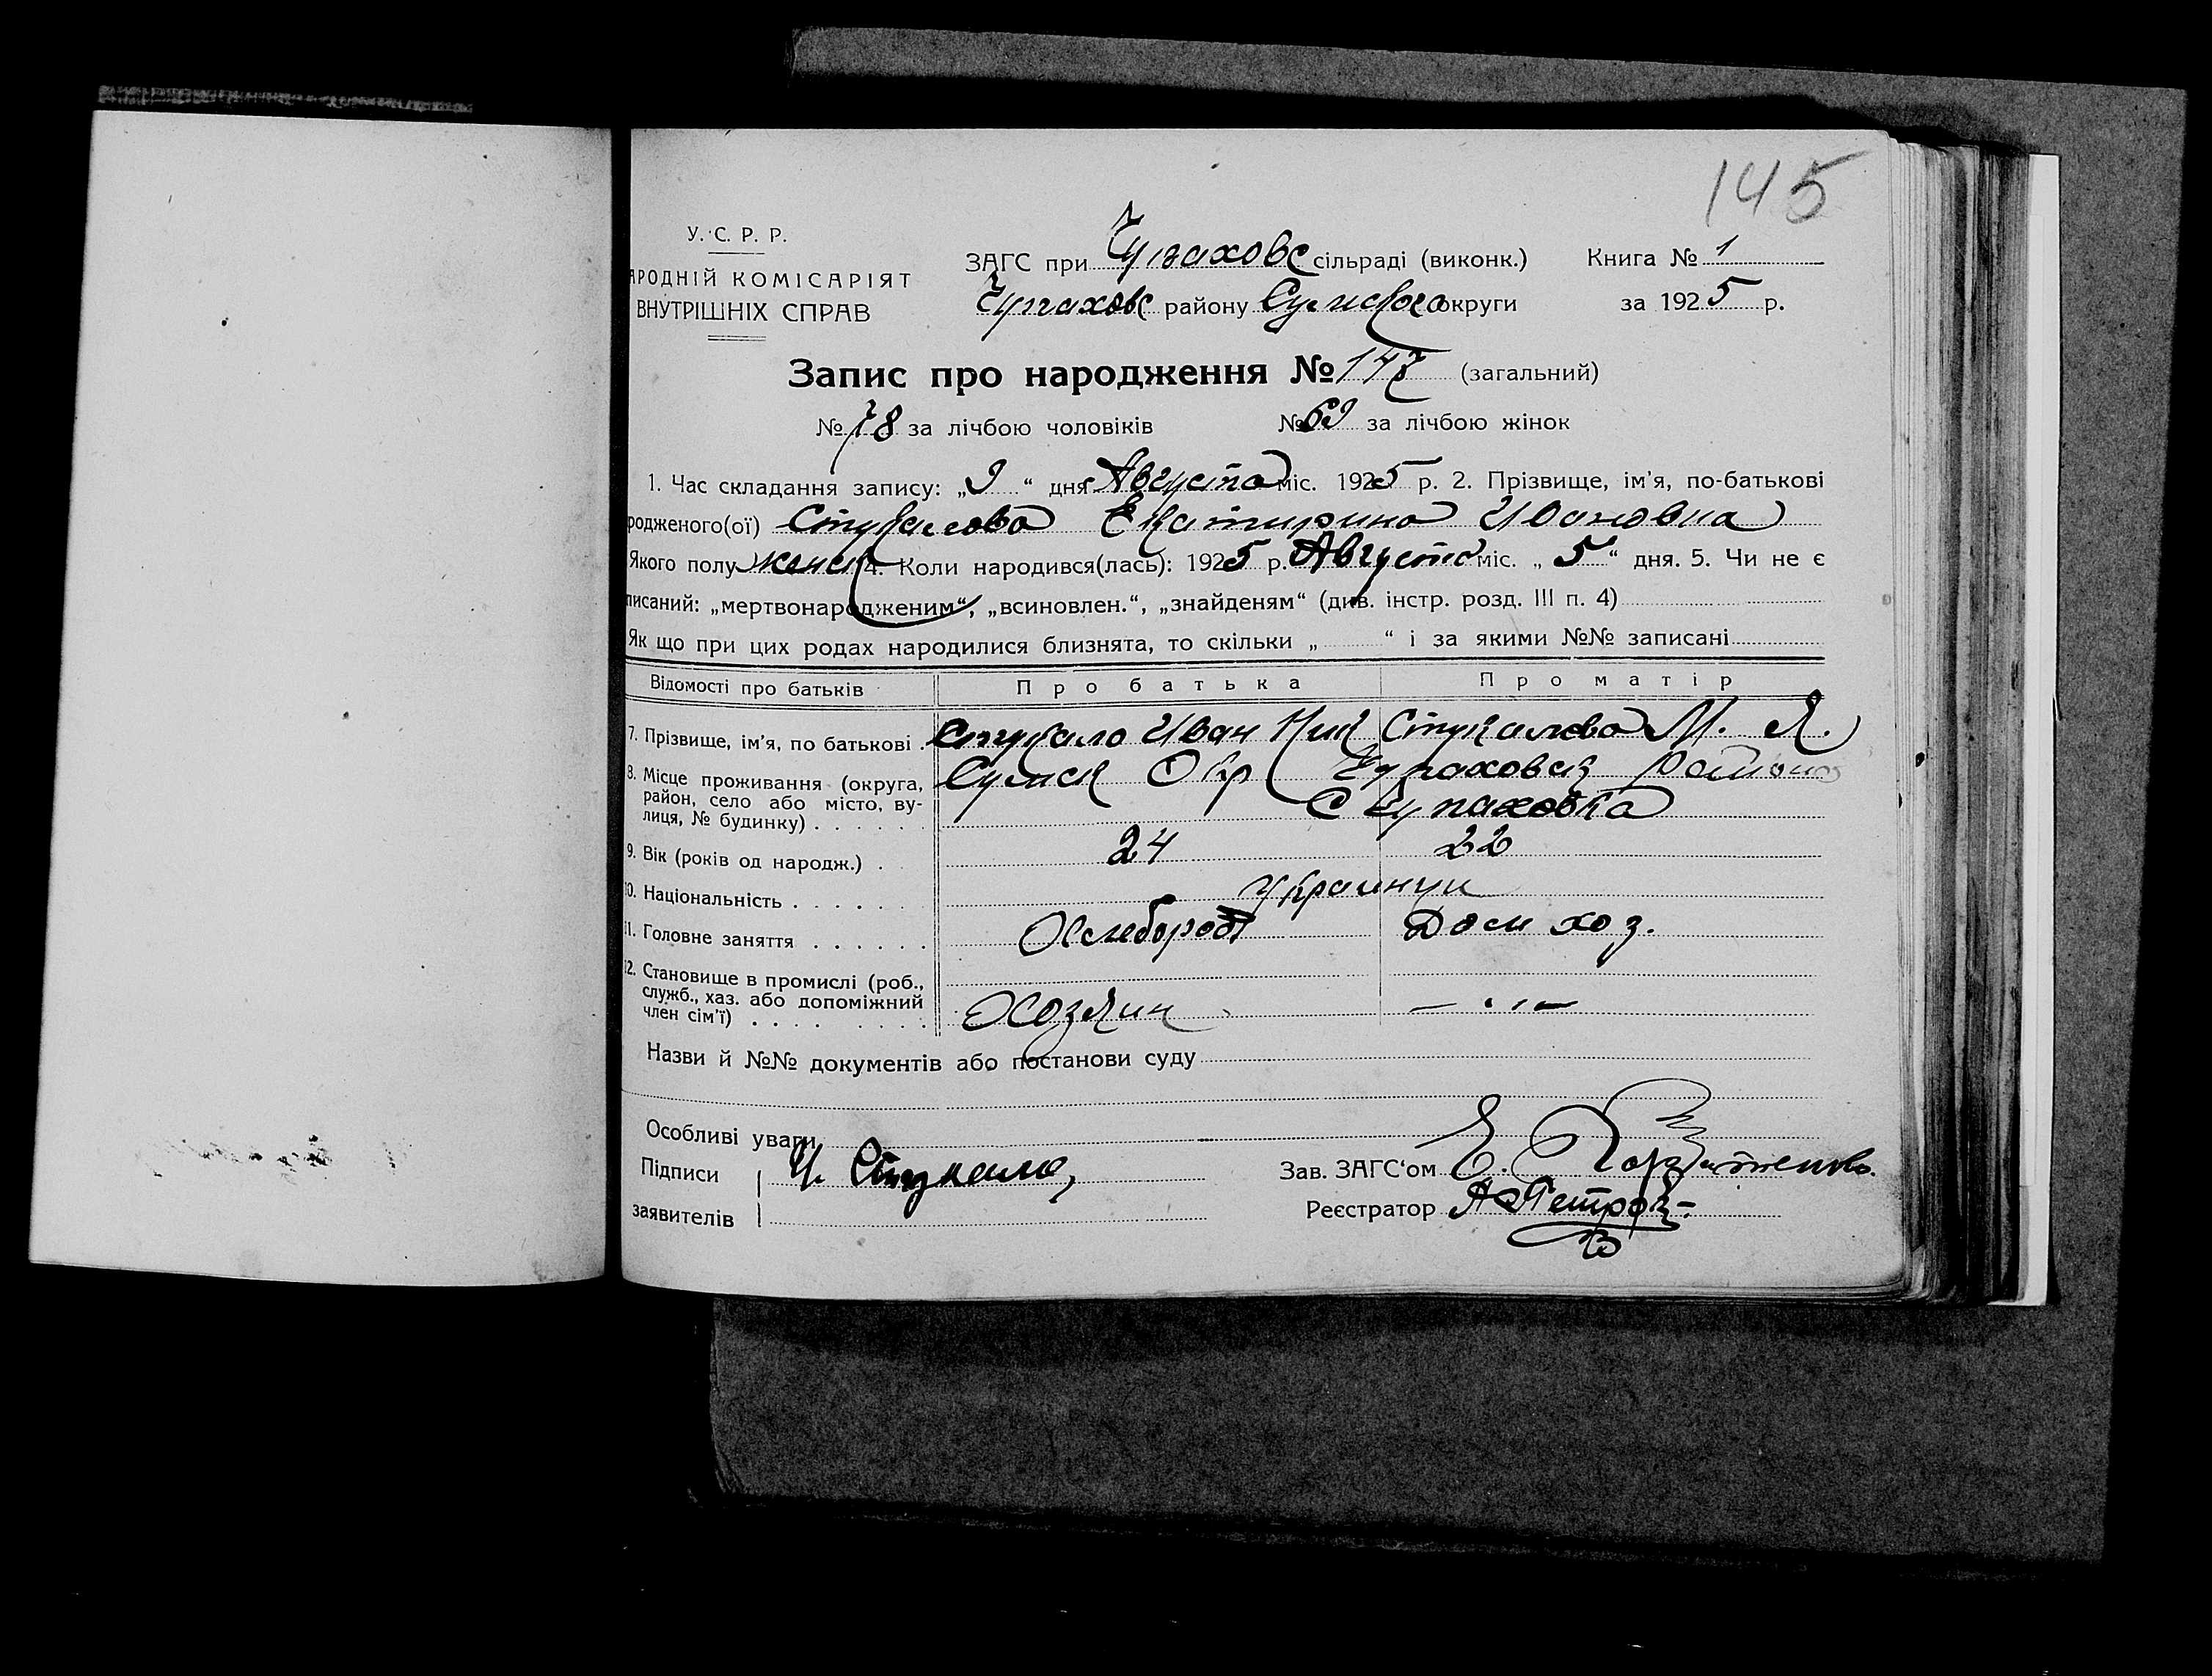 145
У. С. Р. Р.
АРОДНІЙ КОМІСАРІЯТ
ВНУТРІШНІХ СПРАВ
ЗАГС при Чупаховс сільраді (виконк.) Книга № 1
Чупаховс району Сумского округи за 1925 р.
Запис про народження № 147 (загальний)
№ 78 за лічбою чоловіків № 69 за лічбою жінок
1. Час складання запису: „9“ дня Августа міс. 1925 р. 2. Прізвище, ім'я, по-батькові
родженого(ої) Стукалова Екатирина Ивановна
Якого полу женск 4. Коли народився(лась): 1925 р. Августа міс. „5“ дня. 5. Чи не є
писаний: „мертвонародженим“, „всиновлен.“, „знайденям“ (див. інстр. розд. III п. 4)
Як що при цих родах народилися близнята, то скільки „ “ і за якими №№ записані
Відомості про батьків Про батька Про матір
7. Прізвище, ім'я, по батькові Стукало Иван Ник Стукалова М. Я.
8. Місце проживання (округа, район, село або місто, вулиця, № будинку) Сумск Окр Чупаховск района
С Чупаховка
9. Вік (років од народж.) 24 22
10. Національність Украинци
11. Головне заняття Хлебороб Дом хоз.
12. Становище в промислі (роб., служб., хаз. або допоміжний член сім'ї) Хозяин — „ —
Назви й №№ документів або постанови суду
Особливі уваги
Підписи И. Стукало Зав. ЗАГС'ом Е.
заявителів Реєстратор